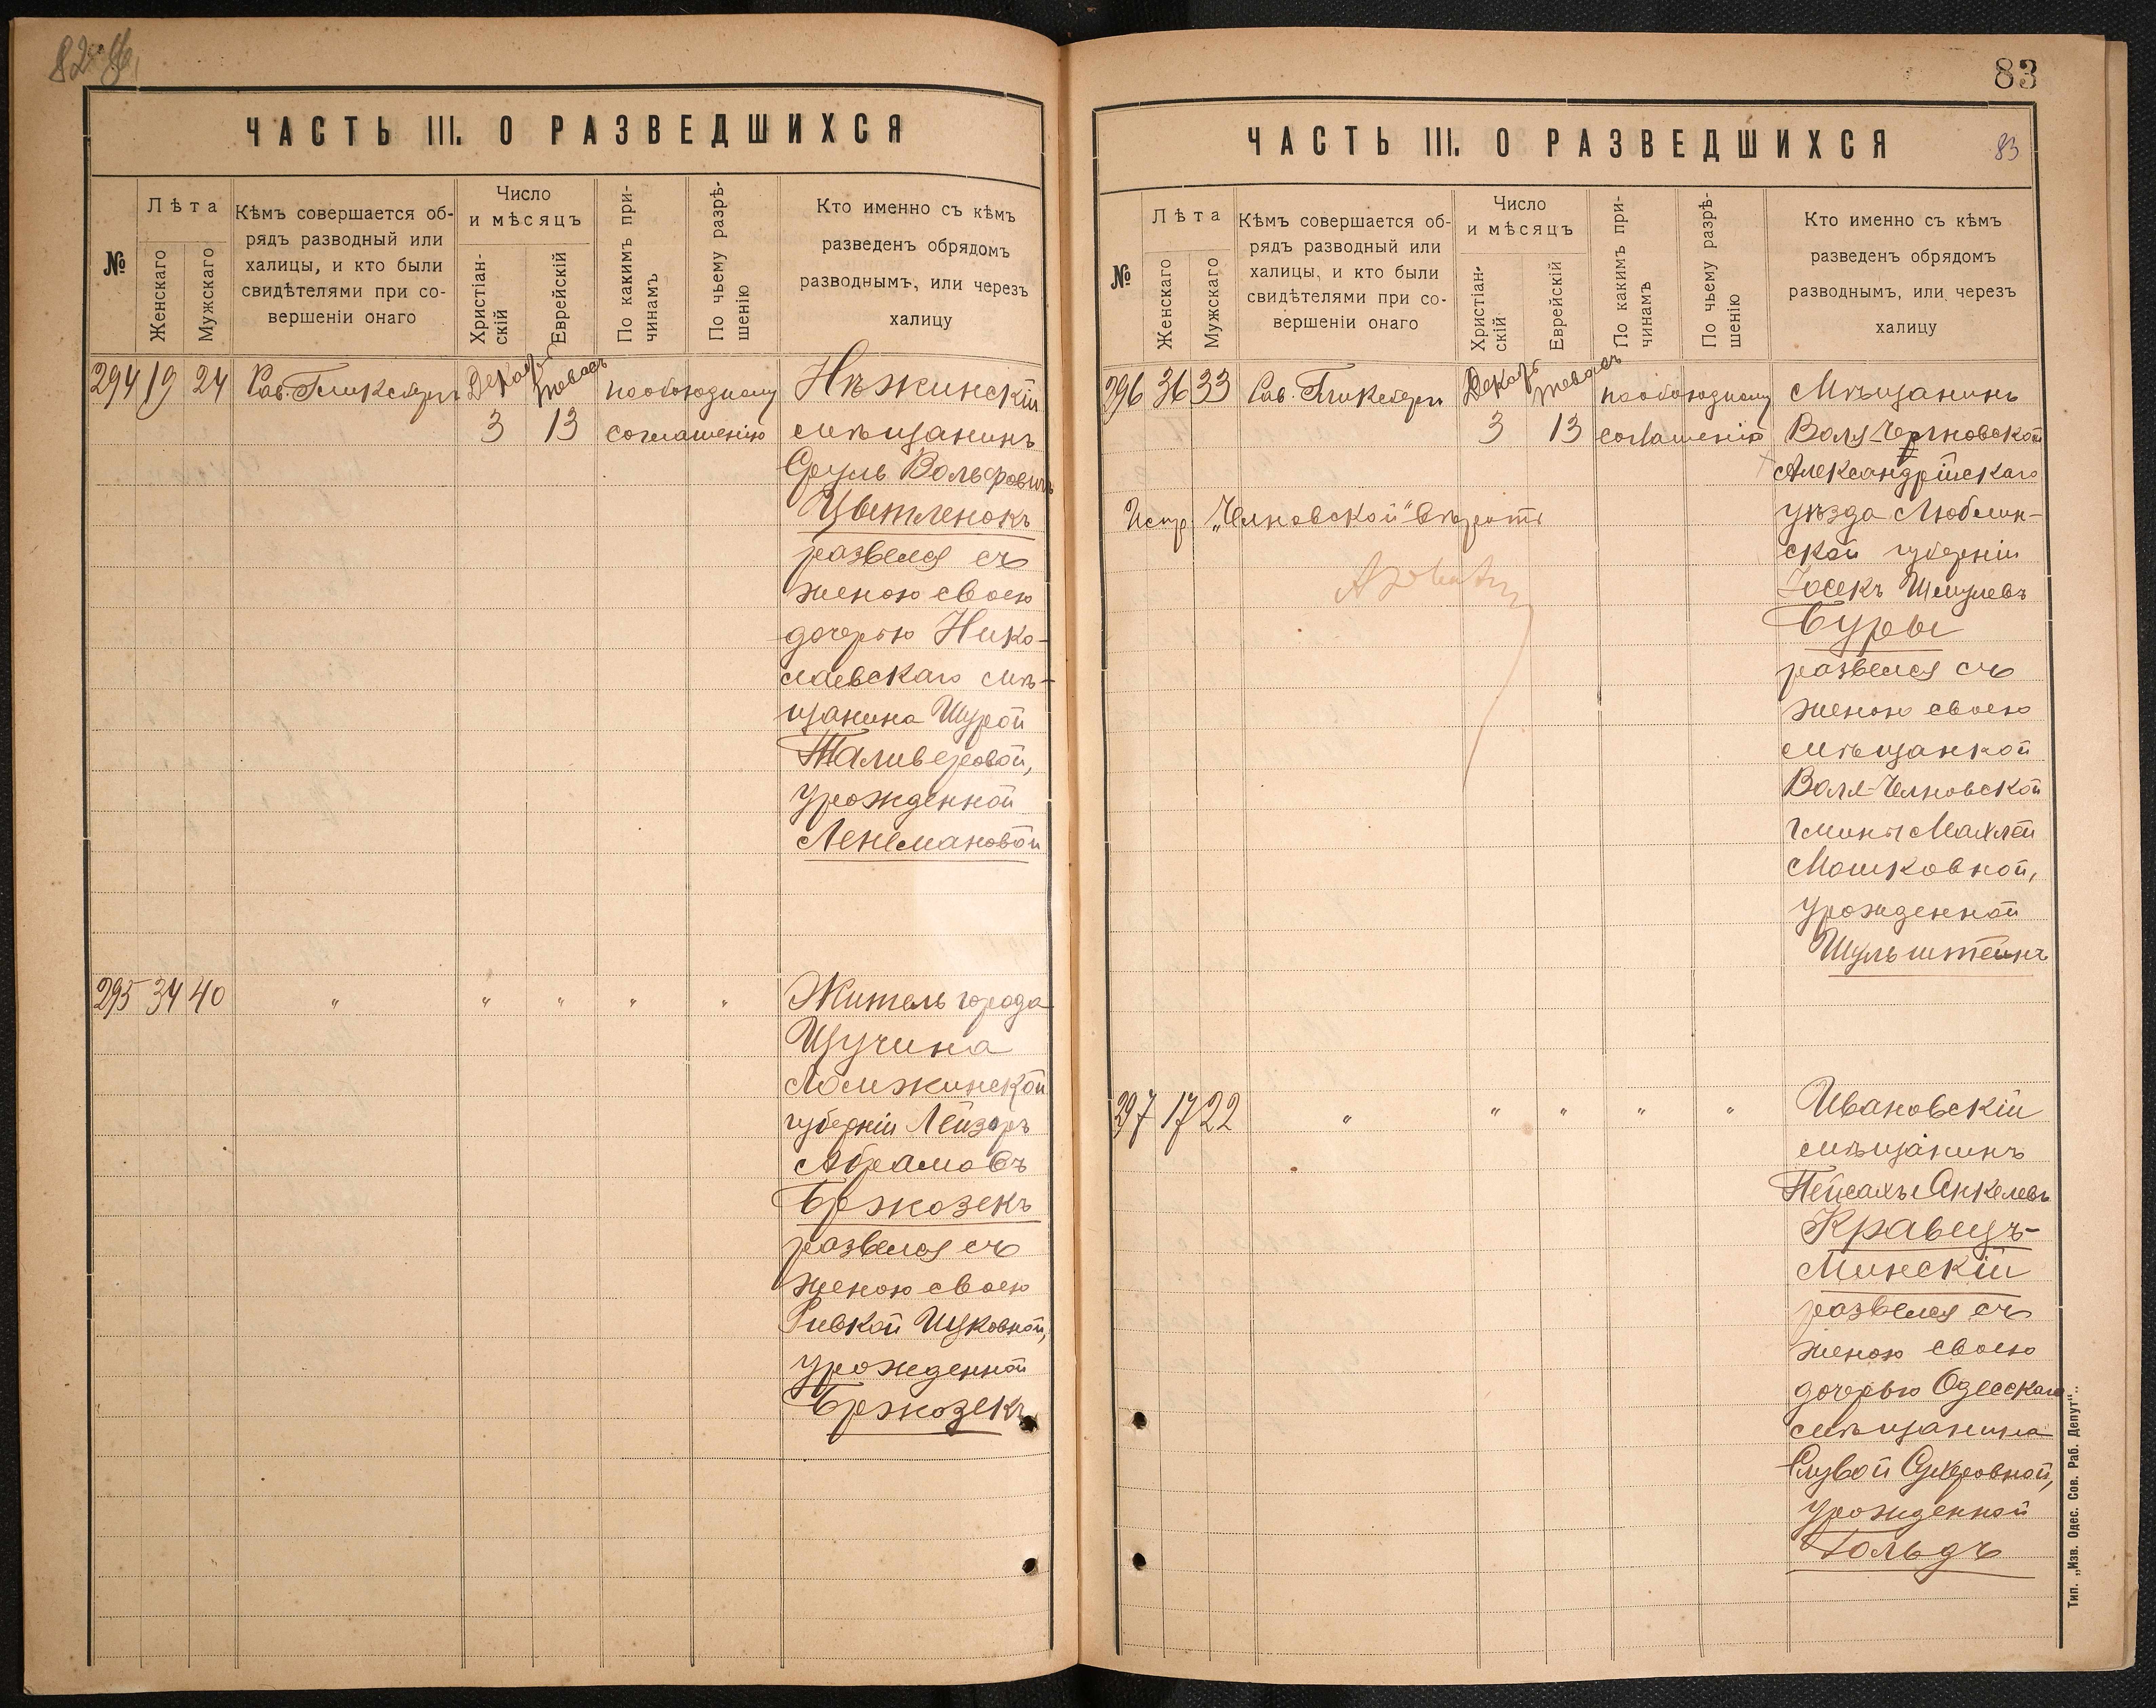 83
ЧАСТЬ III. О РАЗВЕДШИХСЯ
№
Лѣта
Женскаго
Мужскаго
Кѣмъ совершается об-
рядъ разводный или
халицы, и кто были
свидѣтелями при со-
вершеніи онаго
Число
и мѣсяцъ
Христіан-
скій
Еврейскій
По какимъ при-
чинамъ
По чьему разрѣ-
шенію
Кто именно съ кѣмъ
разведенъ обрядомъ
разводнымъ, или черезъ
халицу
294 19 24 Рав. Гликсберг Декаб. 3 13 по обоюдному
соглашенію
Нѣжинскій
мѣщанинъ
Сруль Вольфовичъ
Цвитленокъ
развелся съ
женою своею
дочерью Нико-
лаевскаго мѣ-
щанина Шурой
Таливеровой,
урожденной
Ленемановой
295 34 40 " " " " "
Житель города
Щучина
Ломжинской
губерніи Лейзоръ
Абрамовъ
Бржозекъ
развелся съ
женою своею
Ривкой Ицковной,
урожденной
Бржозекъ
83
ЧАСТЬ III. О РАЗВЕДШИХСЯ
№
Лѣта
Женскаго
Мужскаго
Кѣмъ совершается об-
рядъ разводный или
халицы, и кто были
свидѣтелями при со-
вершеніи онаго
Число
и мѣсяцъ
Христіан-
скій
Еврейскій
По какимъ при-
чинамъ
По чьему разрѣ-
шенію
Кто именно съ кѣмъ
разведенъ обрядомъ
разводнымъ, или черезъ
халицу
296 36 33 Рав. Гликсберг Декаб. 3 13 по обоюдному
соглашенію
Испр. „Челновской" вѣрить
Мѣщанинъ
Воля-Черновской
Александрійскаго
уѣзда Люблин-
ской губерніи
Іосекъ Шмулевъ
Буры
развелся съ
женою своею
мѣщанкой
Воля-Челновской
гмины Махлей
Мошковной,
урожденной
Шульштейнъ
297 17 22 " " " " "
Ивановскій
мѣщанинъ
Пейсахъ Анкелевъ
Кравецъ-
Минскій
развелся съ
женою своею
дочерью Одесскаго
мѣщанина
Слувой Сухеровной,
урожденной
Гольдъ
Тип. „Изв. Одес. Сов. Раб. Депут".